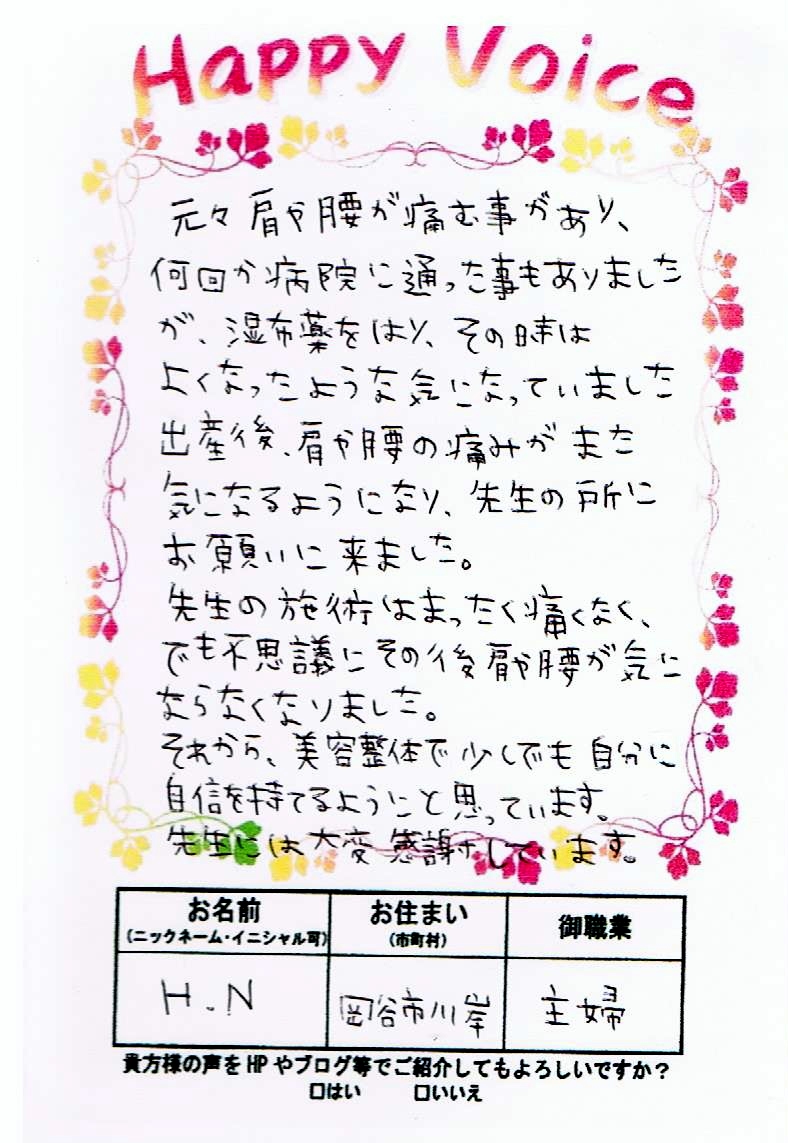 Happy Voice
元々肩や腰が痛む事があり、
何回か病院に通った事もありました
が、湿布薬をはり、その時は
よくなったような気になっていました
出産後、肩や腰の痛みがまた
気になるようになり、先生の所に
お願いに来ました。
先生の施術はまったく痛くなく、
でも不思議にその後肩や腰が気に
ならなくなりました。
それから、美容整体で少しでも自分に
自信を持てるようにと思っています。
先生には大変感謝しています。
お名前 お住まい 御職業
(ニックネーム・イニシャル可) (市町村)
H.N 岡谷市川岸 主婦
貴方様の声をHPやブログ等でご紹介してもよろしいですか？
□はい □いいえ